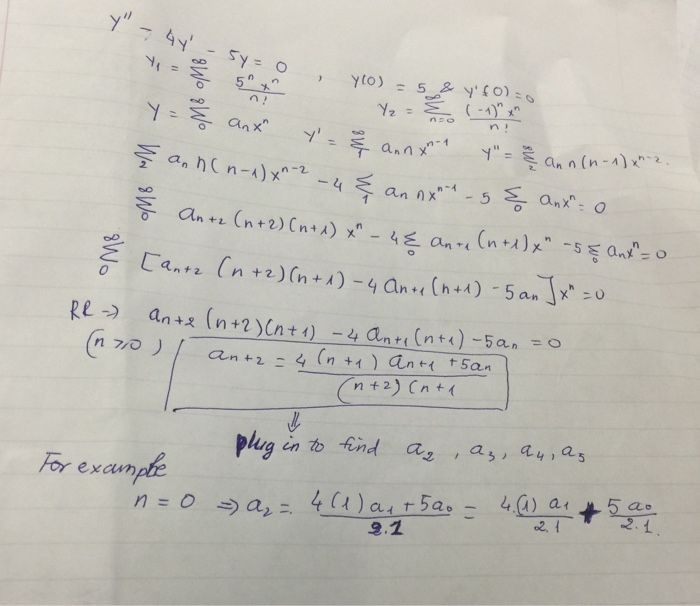 y'' - 4y' - 5y = 0 , y(0) = 5 & y'(0) = 0
y₁ = ∞Σ0 5ⁿxⁿ/n! y₂ = ∞Σn=0 (-1)ⁿxⁿ/n!
y = ∞Σ0 aₙxⁿ y' = ∞Σ1 aₙ n xⁿ⁻¹ y'' = ∞Σ2 aₙ n(n-1)xⁿ⁻².
∞Σ2 aₙ n(n-1)xⁿ⁻² - 4 ∞Σ1 aₙ n xⁿ⁻¹ - 5 ∞Σ0 aₙxⁿ = 0
∞Σ0 aₙ₊₂ (n+2)(n+1) xⁿ - 4 ∞Σ0 aₙ₊₁ (n+1)xⁿ - 5 ∞Σ0 aₙxⁿ = 0
∞Σ0 [aₙ₊₂ (n+2)(n+1) - 4 aₙ₊₁ (n+1) - 5aₙ] xⁿ = 0
RR ⇒ aₙ₊₂ (n+2)(n+1) - 4 aₙ₊₁ (n+1) - 5aₙ = 0
(n ≥ 0) aₙ₊₂ = 4 (n+1) aₙ₊₁ + 5aₙ / (n+2)(n+1
⇓
plug in to find a₂ , a₃, a₄, a₅
For example
n = 0 ⇒ a₂ = 4(1)a₁ + 5a₀ / 2.1 = 4.(1) a₁ / 2.1 + 5 a₀ / 2.1.